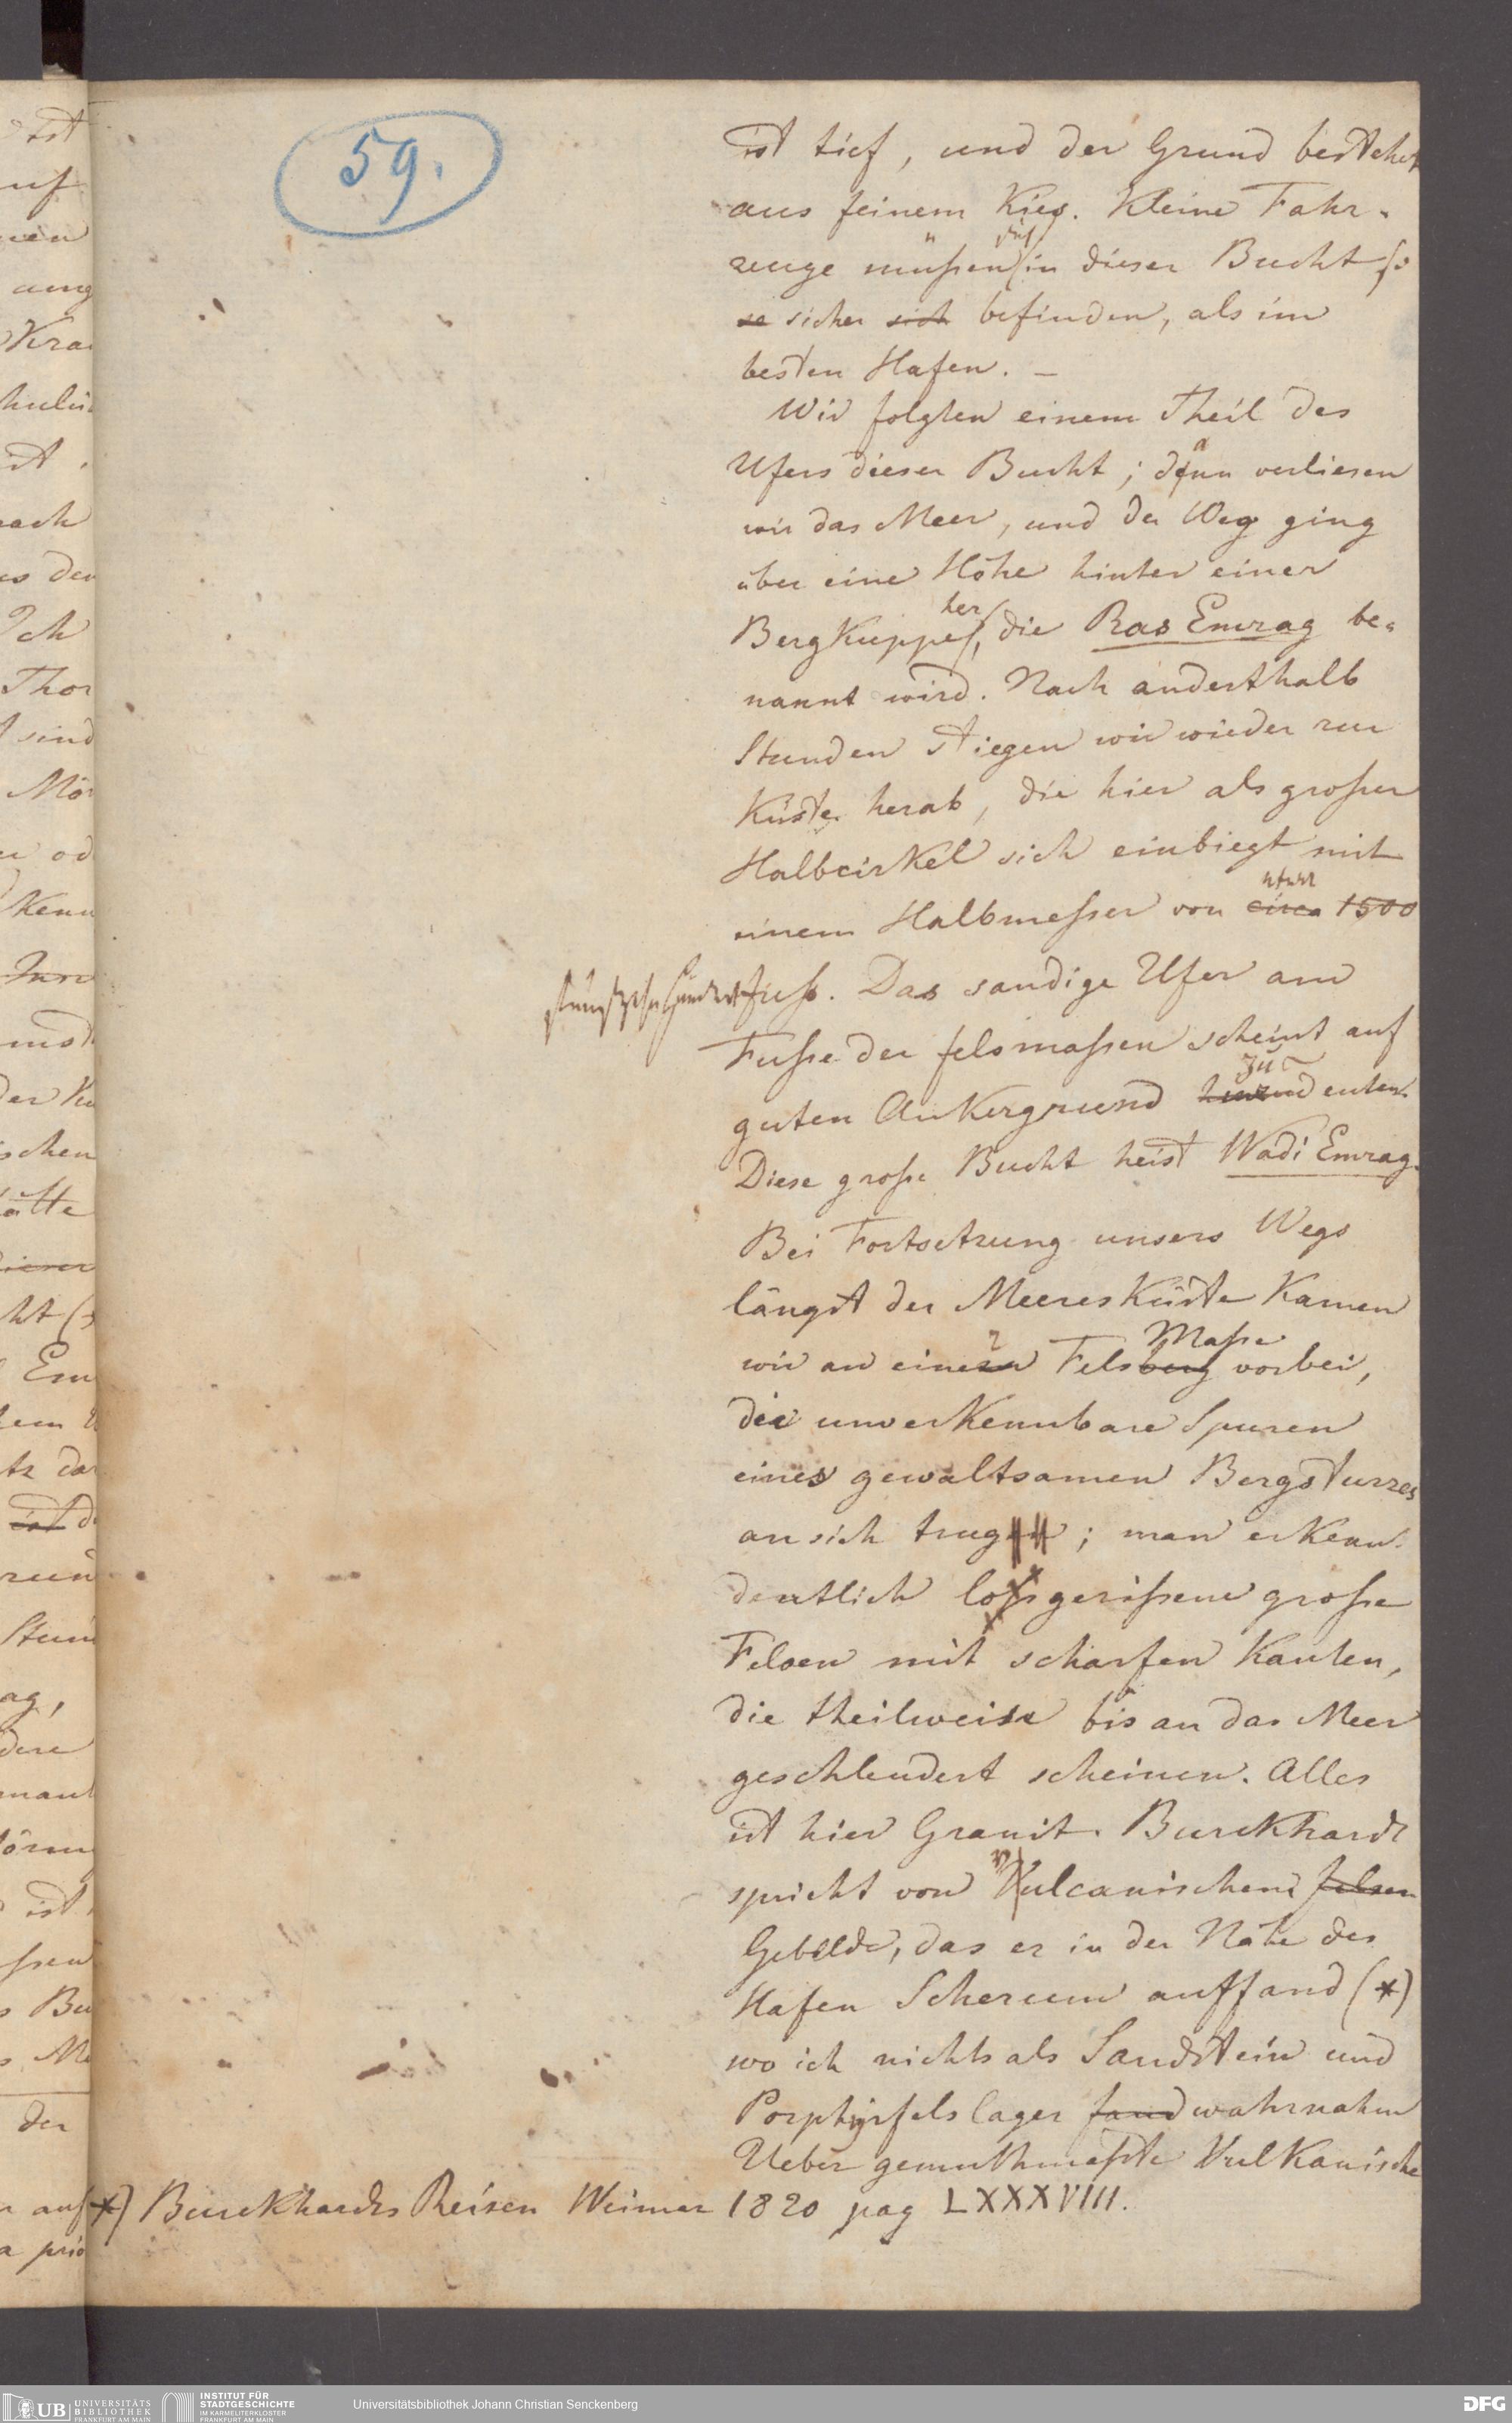 59.
ist tief, und der Grund bestehet
aus feinem Kies. Kleine Fahr-
zeuge müßen sich in dieser Bucht so
se sicher sich befinden, als im
besten Hafen. –
Wir folgten einem Theil des
Ufers dieser Bucht; dann verliesen
wir das Meer, und der Weg ging
über eine Höhe hinter einer
BergKuppe her, die Ras Emrag be-
nannt wird. Nach anderthalb
Stunden stiegen wir wieder zur
Küste herab, die hier als großer
HalbcirKel sich einbiegt mit
einem Halbmeßer von etwa circa 1500
fünfzehnhundert Fuß. Das sandige Ufer am
Fuße der felsmaßen scheint auf
guten AnKergrund zu deuten.
Diese große Bucht heist Wadi Emrag.
Bei Fortsetzung unsers Wegs
längst der MeeresKüste Kamen
wir an einer Felsberg Maße vorbei,
die unverKennbare Spuren
eines gewaltsamen Bergsturzes
an sich trug; man erKenn.
deutlich losgerißene große
Felsen mit scharfen Kanten,
die theilweise bis an das Meer
geschleudert scheinen. Alles
ist hier Granit. Burckhardt
spricht von vulcanischem felsen
Gebilde, das er in der Nähe des
Hafen Scherum auffand (*)
wo ich nichts als Sandstein und
Porphyrfelslager fand wahrnahm
Ueber gemuthmaßte VulKanische
*) Burckhardts Reisen Weimar 1820 pag LXXXVIII.
UB UNIVERSITÄTS
BIBLIOTHEK
FRANKFURT AM MAIN
INSTITUT FÜR
STADTGESCHICHTE
IM KARMELITERKLOSTER
FRANKFURT AM MAIN
Universitätsbibliothek Johann Christian Senckenberg
DFG